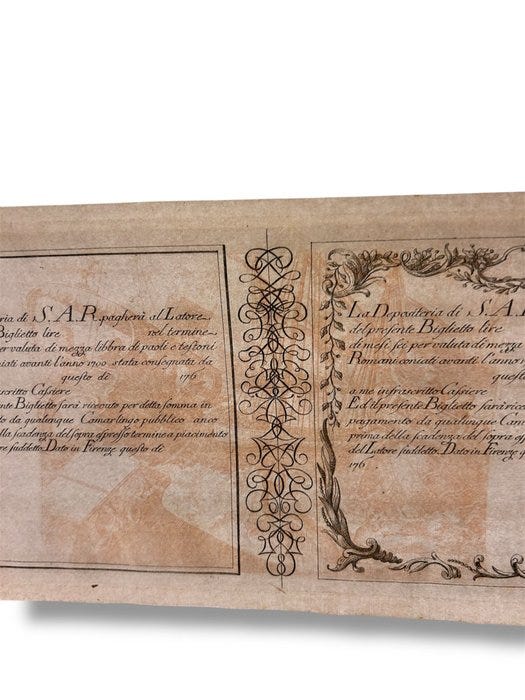 ria di S. A. R. pagherà al Latore
Biglietto lire nel termine
per valuta di mezza libbra di paoli e testoni
niati avanti l'anno 1700. stata consegnata da
questo dì 176
scritto Cassiere
nte Biglietto sarà ricevuto per detta somma in
to da qualunque Camarlingo pubblico anco
lla scadenza del sopra espresso termine a piacimento
re suddetto. Dato in Firenze questo dì
La Depositeria di S. A. R
del presente Biglietto lire
di mesi sei per valuta di mezza
Romani coniati avanti l'anno
questo dì
a me infrascritto Cassiere
E d il presente Biglietto sarà rice
pagamento da qualunque Cam
prima della scadenza del sopra esp
del Latore suddetto. Dato in Firenze q
176